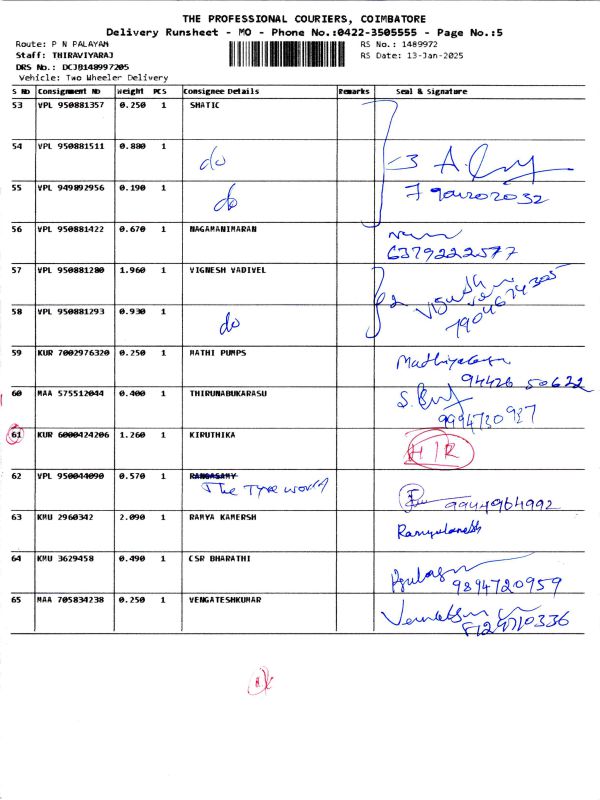 THE PROFESSIONAL COURIERS, COIMBATORE
Delivery Runsheet - MO - Phone No.:0422-3505555 - Page No.:5
Route: P N PALAYAM RS No.: 1489972
Staff: THIRAVIYARAJ RS Date: 13-Jan-2025
DRS No.: DCJB148997205
Vehicle: Two Wheeler Delivery
S No Consignment No Weight PCS Consignee Details Remarks Seal & Signature
53 VPL 950881357 0.250 1 SHATIC
54 VPL 950881511 0.880 1 do
55 VPL 949892956 0.190 1 do
56 VPL 950881422 0.670 1 NAGAMANIMARAN
6379222577
57 VPL 950881280 1.960 1 VIGNESH VADIVEL
58 VPL 950881293 0.930 1 do 7904674305
59 KUR 7002976320 0.250 1 MATHI PUMPS
94426 50622
60 MAA 575512044 0.400 1 THIRUNABUKARASU
9994730927
61 KUR 6000424206 1.260 1 KIRUTHIKA H/R
62 VPL 950044090 0.570 1 RANGASAMY
The Tyre world 9944964992
63 KMU 2960342 2.090 1 RAMYA KAMERSH
64 KMU 3629458 0.490 1 CSR BHARATHI
9894720959
65 MAA 705834238 0.250 1 VENGATESHKUMAR
8129710336